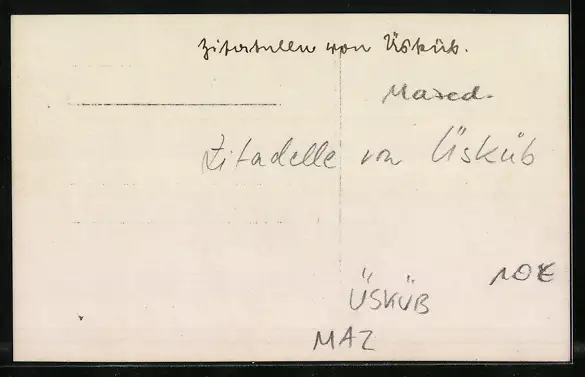 Zitadelle von Üsküb.
Mazed.
Zitadelle von Üsküb
10€
ÜSKÜB
MAZ